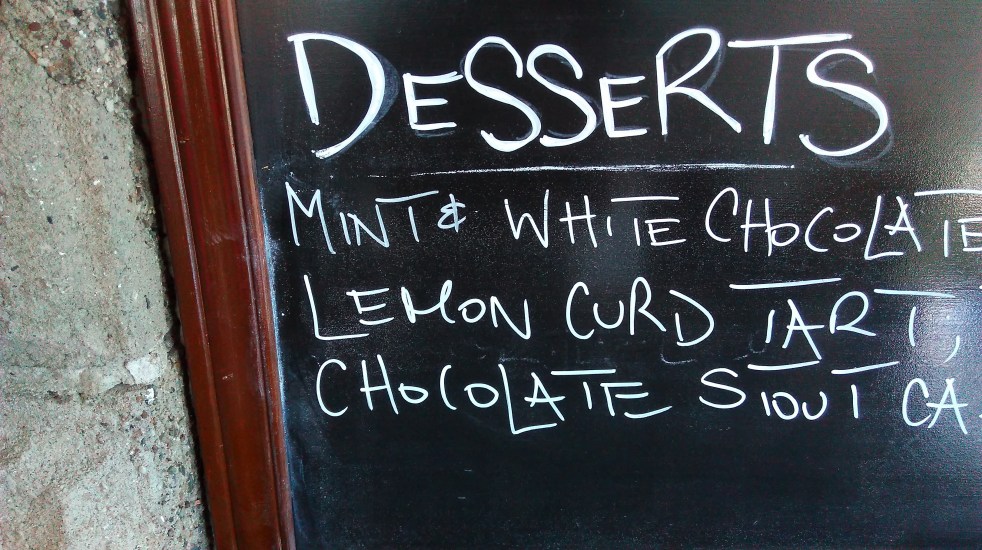 DESSERTS
MINT & WHITE CHOCOLATE
LEMON CURD TART,
CHOCOLATE STOUT CA